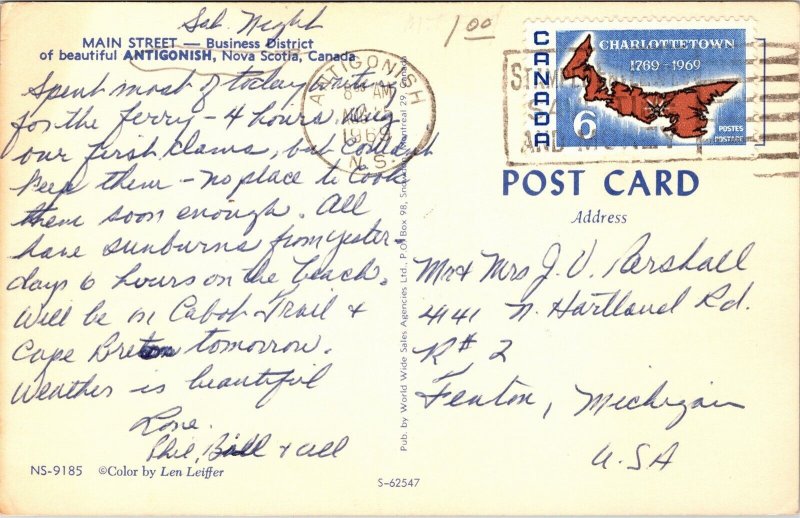 Sat. Night
1.00
MAIN STREET — Business District
of beautiful ANTIGONISH, Nova Scotia, Canada
Spent most of today waiting
for the ferry - 4 hours, dug
our first clams, but couldn't
keep them - no place to cook
them soon enough. All
have sunburns from yester-
days 6 hours on the beach.
Will be on Cabot Trail &
Cape Breton tomorrow.
Weather is beautiful
Love.
Phil, Bill & all
NS-9185 ©Color by Len Leiffer
ANTIGONISH
AM
1969
N.S.
Pub. by World Wide Sales Agencies Ltd., P.O. Box 98, Montreal 29, Canada
S-62547
CANADA
CHARLOTTETOWN
1769-1969
6
POSTES
POSTAGE
AND
POST CARD
Address
Mr & Mrs J. V. Pershall
4141 N. Hartland Rd.
R# 2
Fenton, Michigan
U.S.A